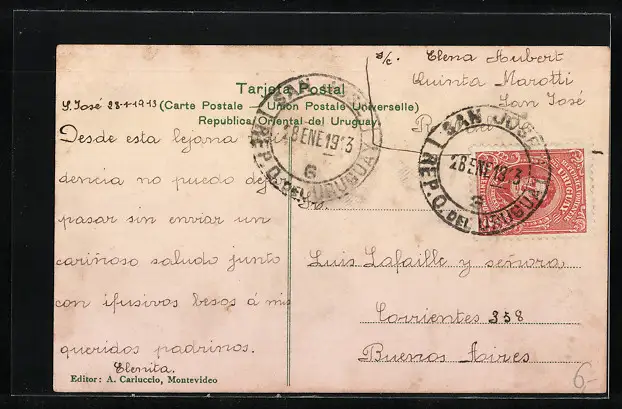 s/c. Elena Aubert
Quinta Marotti
San José
Tarjeta Postal
S. José 28-1-1913 (Carte Postale — Union Postale Universelle)
Republica Oriental del Uruguay
SAN JOSE
28 ENE 1913
6
REP. O. DEL URUGUAY
SAN JOSE
28 ENE 1913
6
REP. O. DEL URUGUAY
Desde esta lejana
dencia no puedo dej
pasar sin enviar un
cariñoso saludo junto
con ifusivos besos á mis
queridos padrinos.
Elenita.
Luis Lafaille y señora
Corrientes 358
Buenos Aires
Editor: A. Carluccio, Montevideo
6-